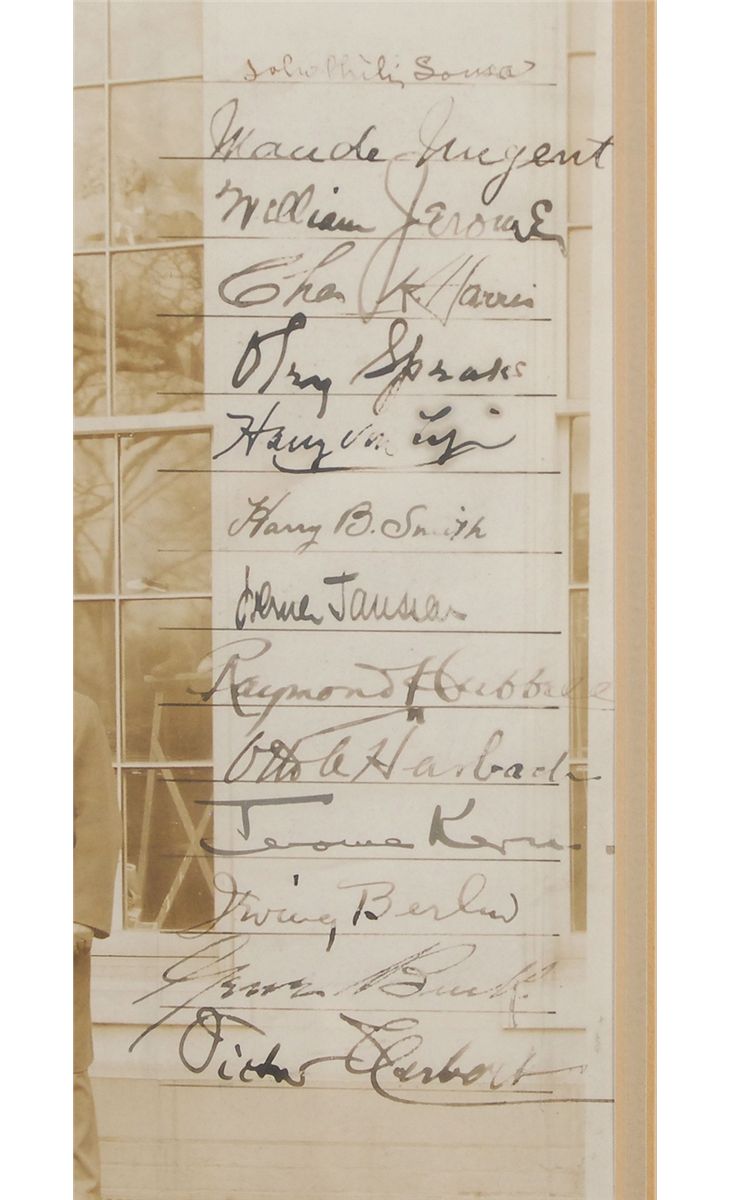 John Philip Sousa
Maude Nugent
William Jerome
Chas K. Harris
Oley Speaks
Harry Von Tilzer
Harry B. Smith
Werner Janssen
Raymond Hubbell
Otto A Harbach
Jerome Kern.
Irving Berlin
Gene Buck
Victor Herbert